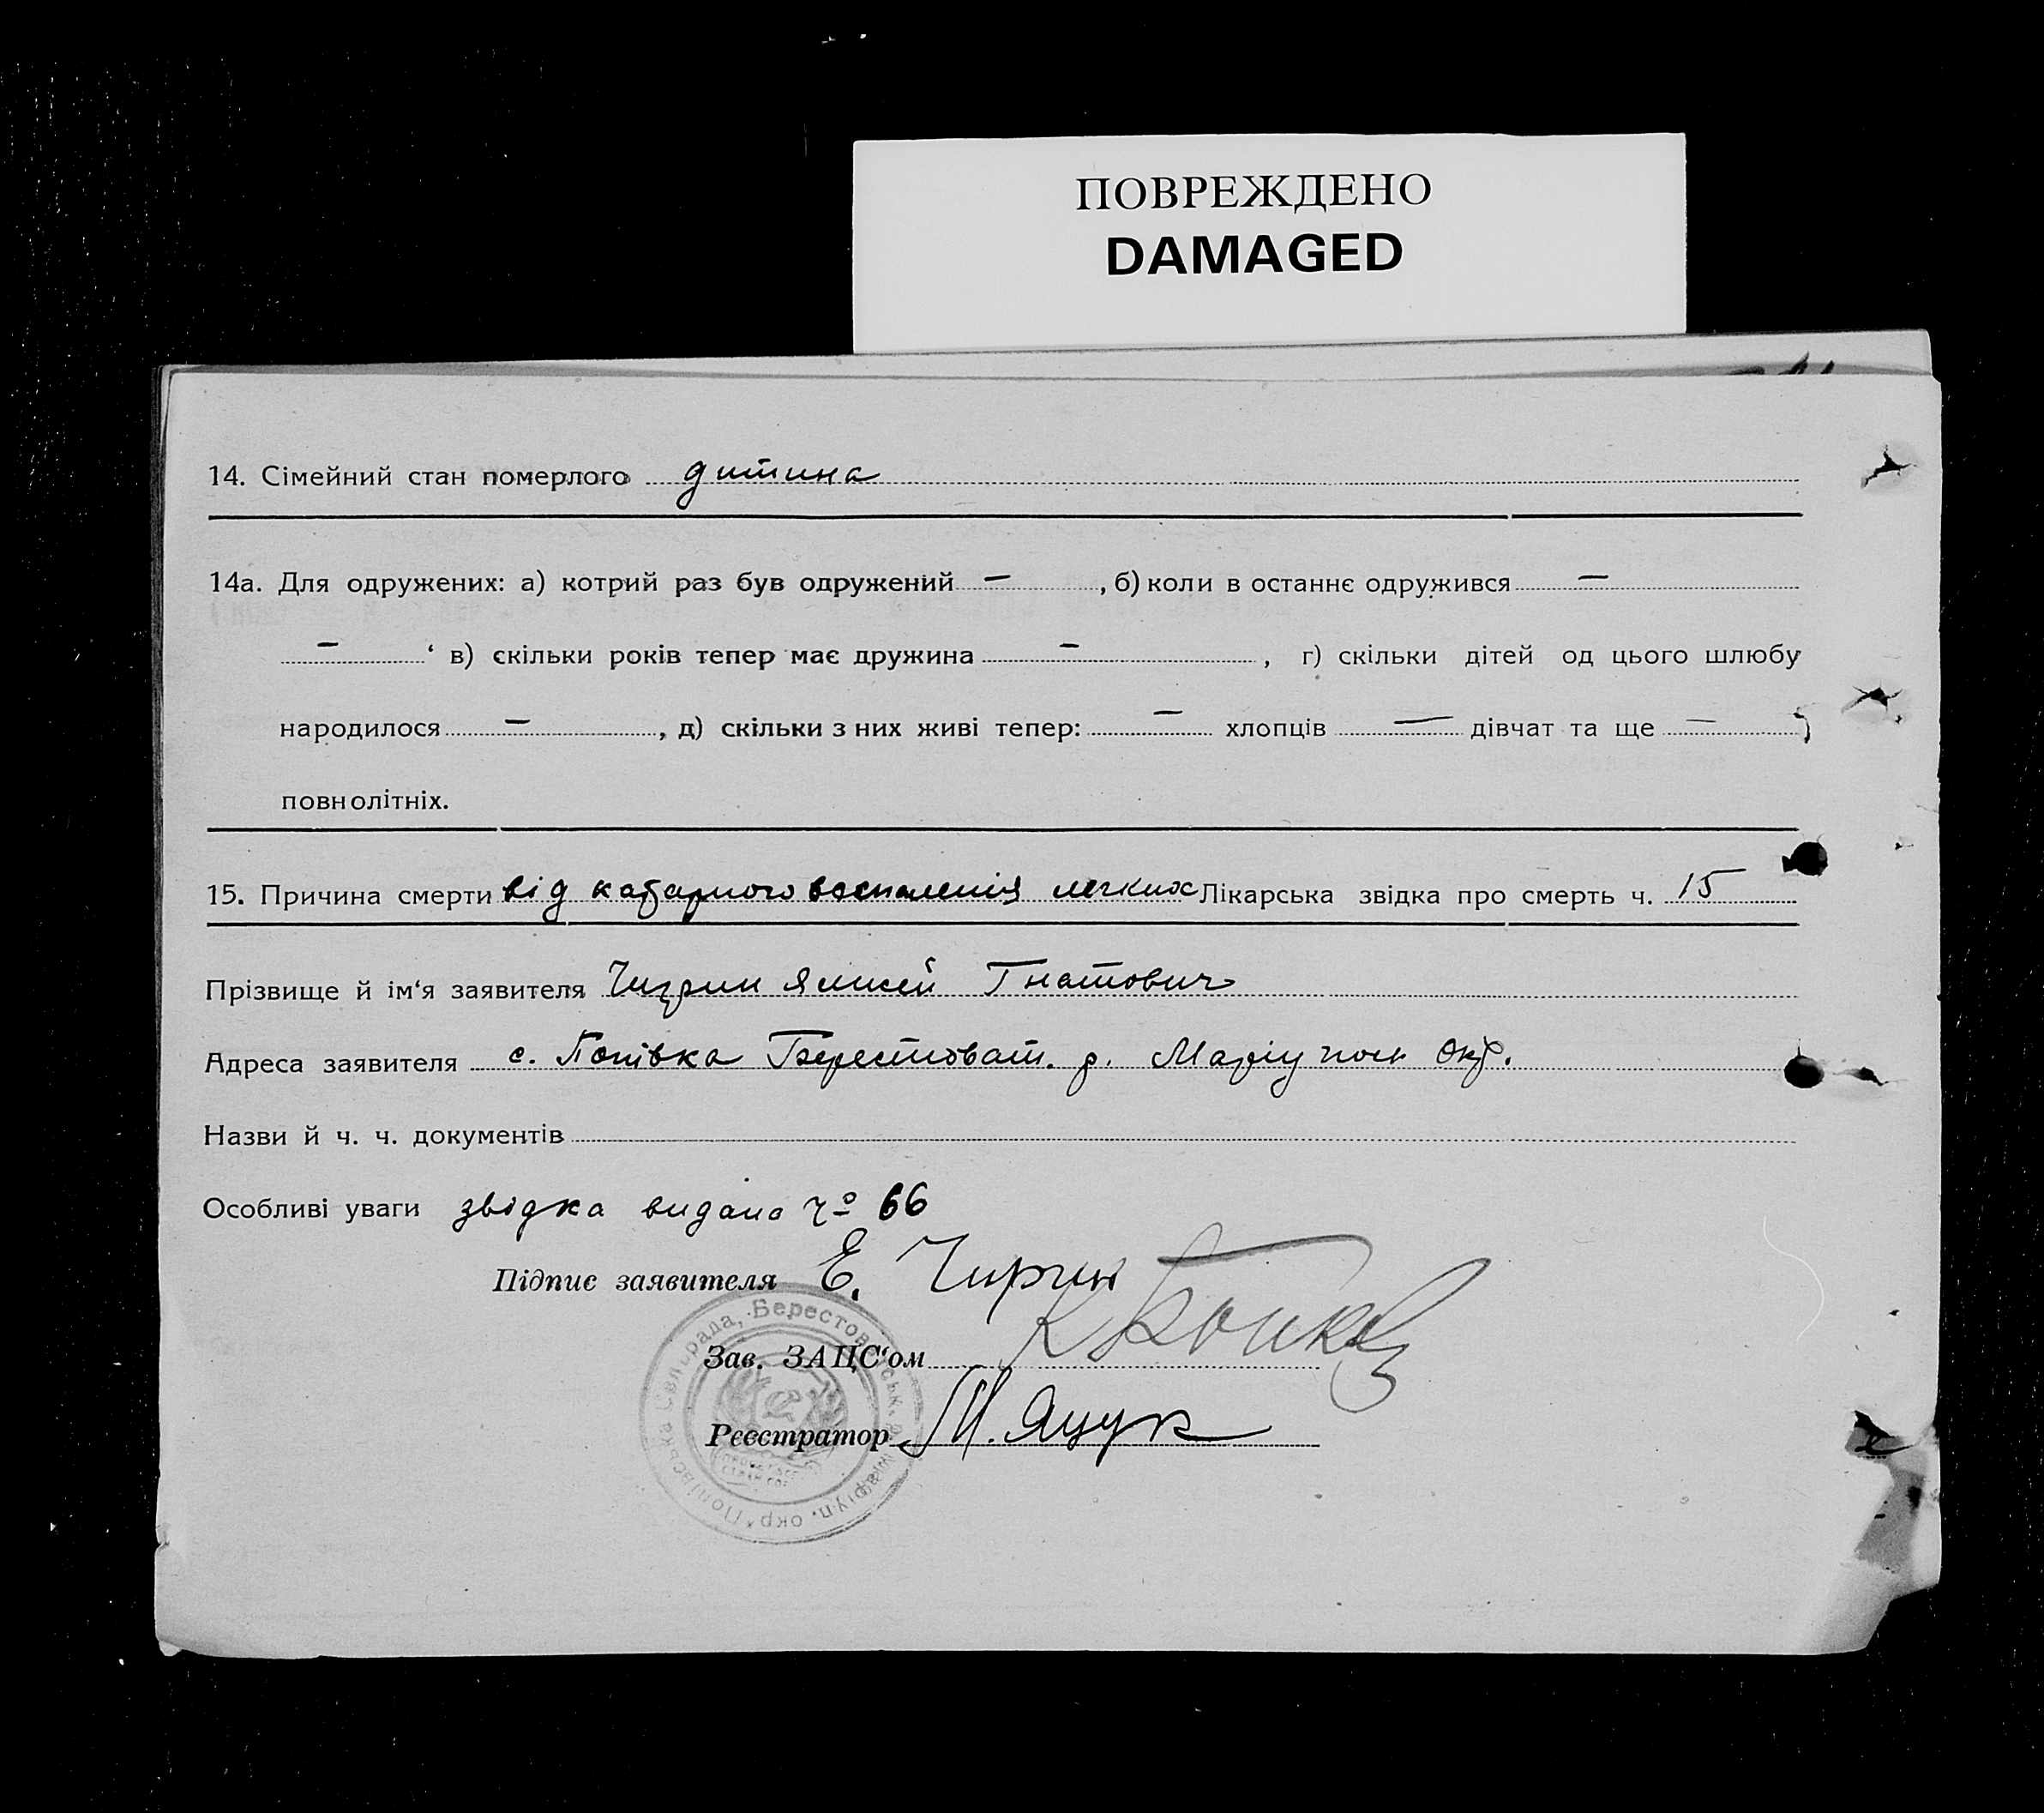 ПОВРЕЖДЕНО
DAMAGED
14. Сімейний стан померлого дитина
14а. Для одружених: а) котрий раз був одружений — , б) коли в останнє одружився —
— ‘ в) скільки років тепер має дружина — , г) скільки дітей од цього шлюбу
народилося — , д) скільки з них живі тепер: — хлопців — дівчат та ще —
повнолітніх.
15. Причина смерти від катарного воспаленія легких Лікарська звідка про смерть ч. 15
Прізвище й ім‘я заявителя Чирин Гнатович
Адреса заявителя с. Попівка Берестоват. р. Маріупол Окр.
Назви й ч. ч. документів
Особливі уваги звідка видана № 66
Підпис заявителя Е. Чирин
Зав. ЗАЦС‘ом К Бойко
Реєстратор М. Яцук
Попівська Сільрада, Берестов ськ. Маріуп. окр.